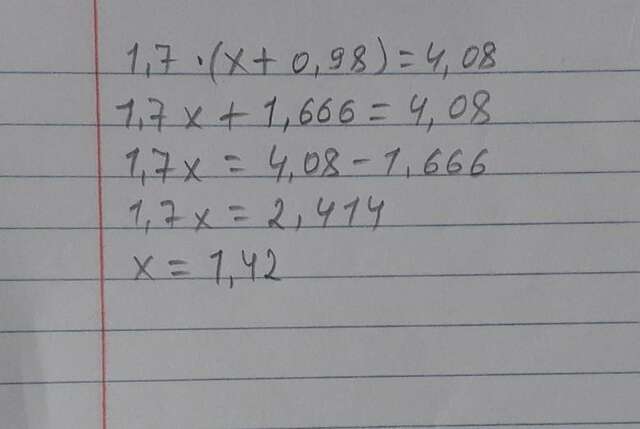 1,7 · (x + 0,98) = 4,08
1,7x + 1,666 = 4,08
1,7x = 4,08 - 1,666
1,7x = 2,414
x = 1,42